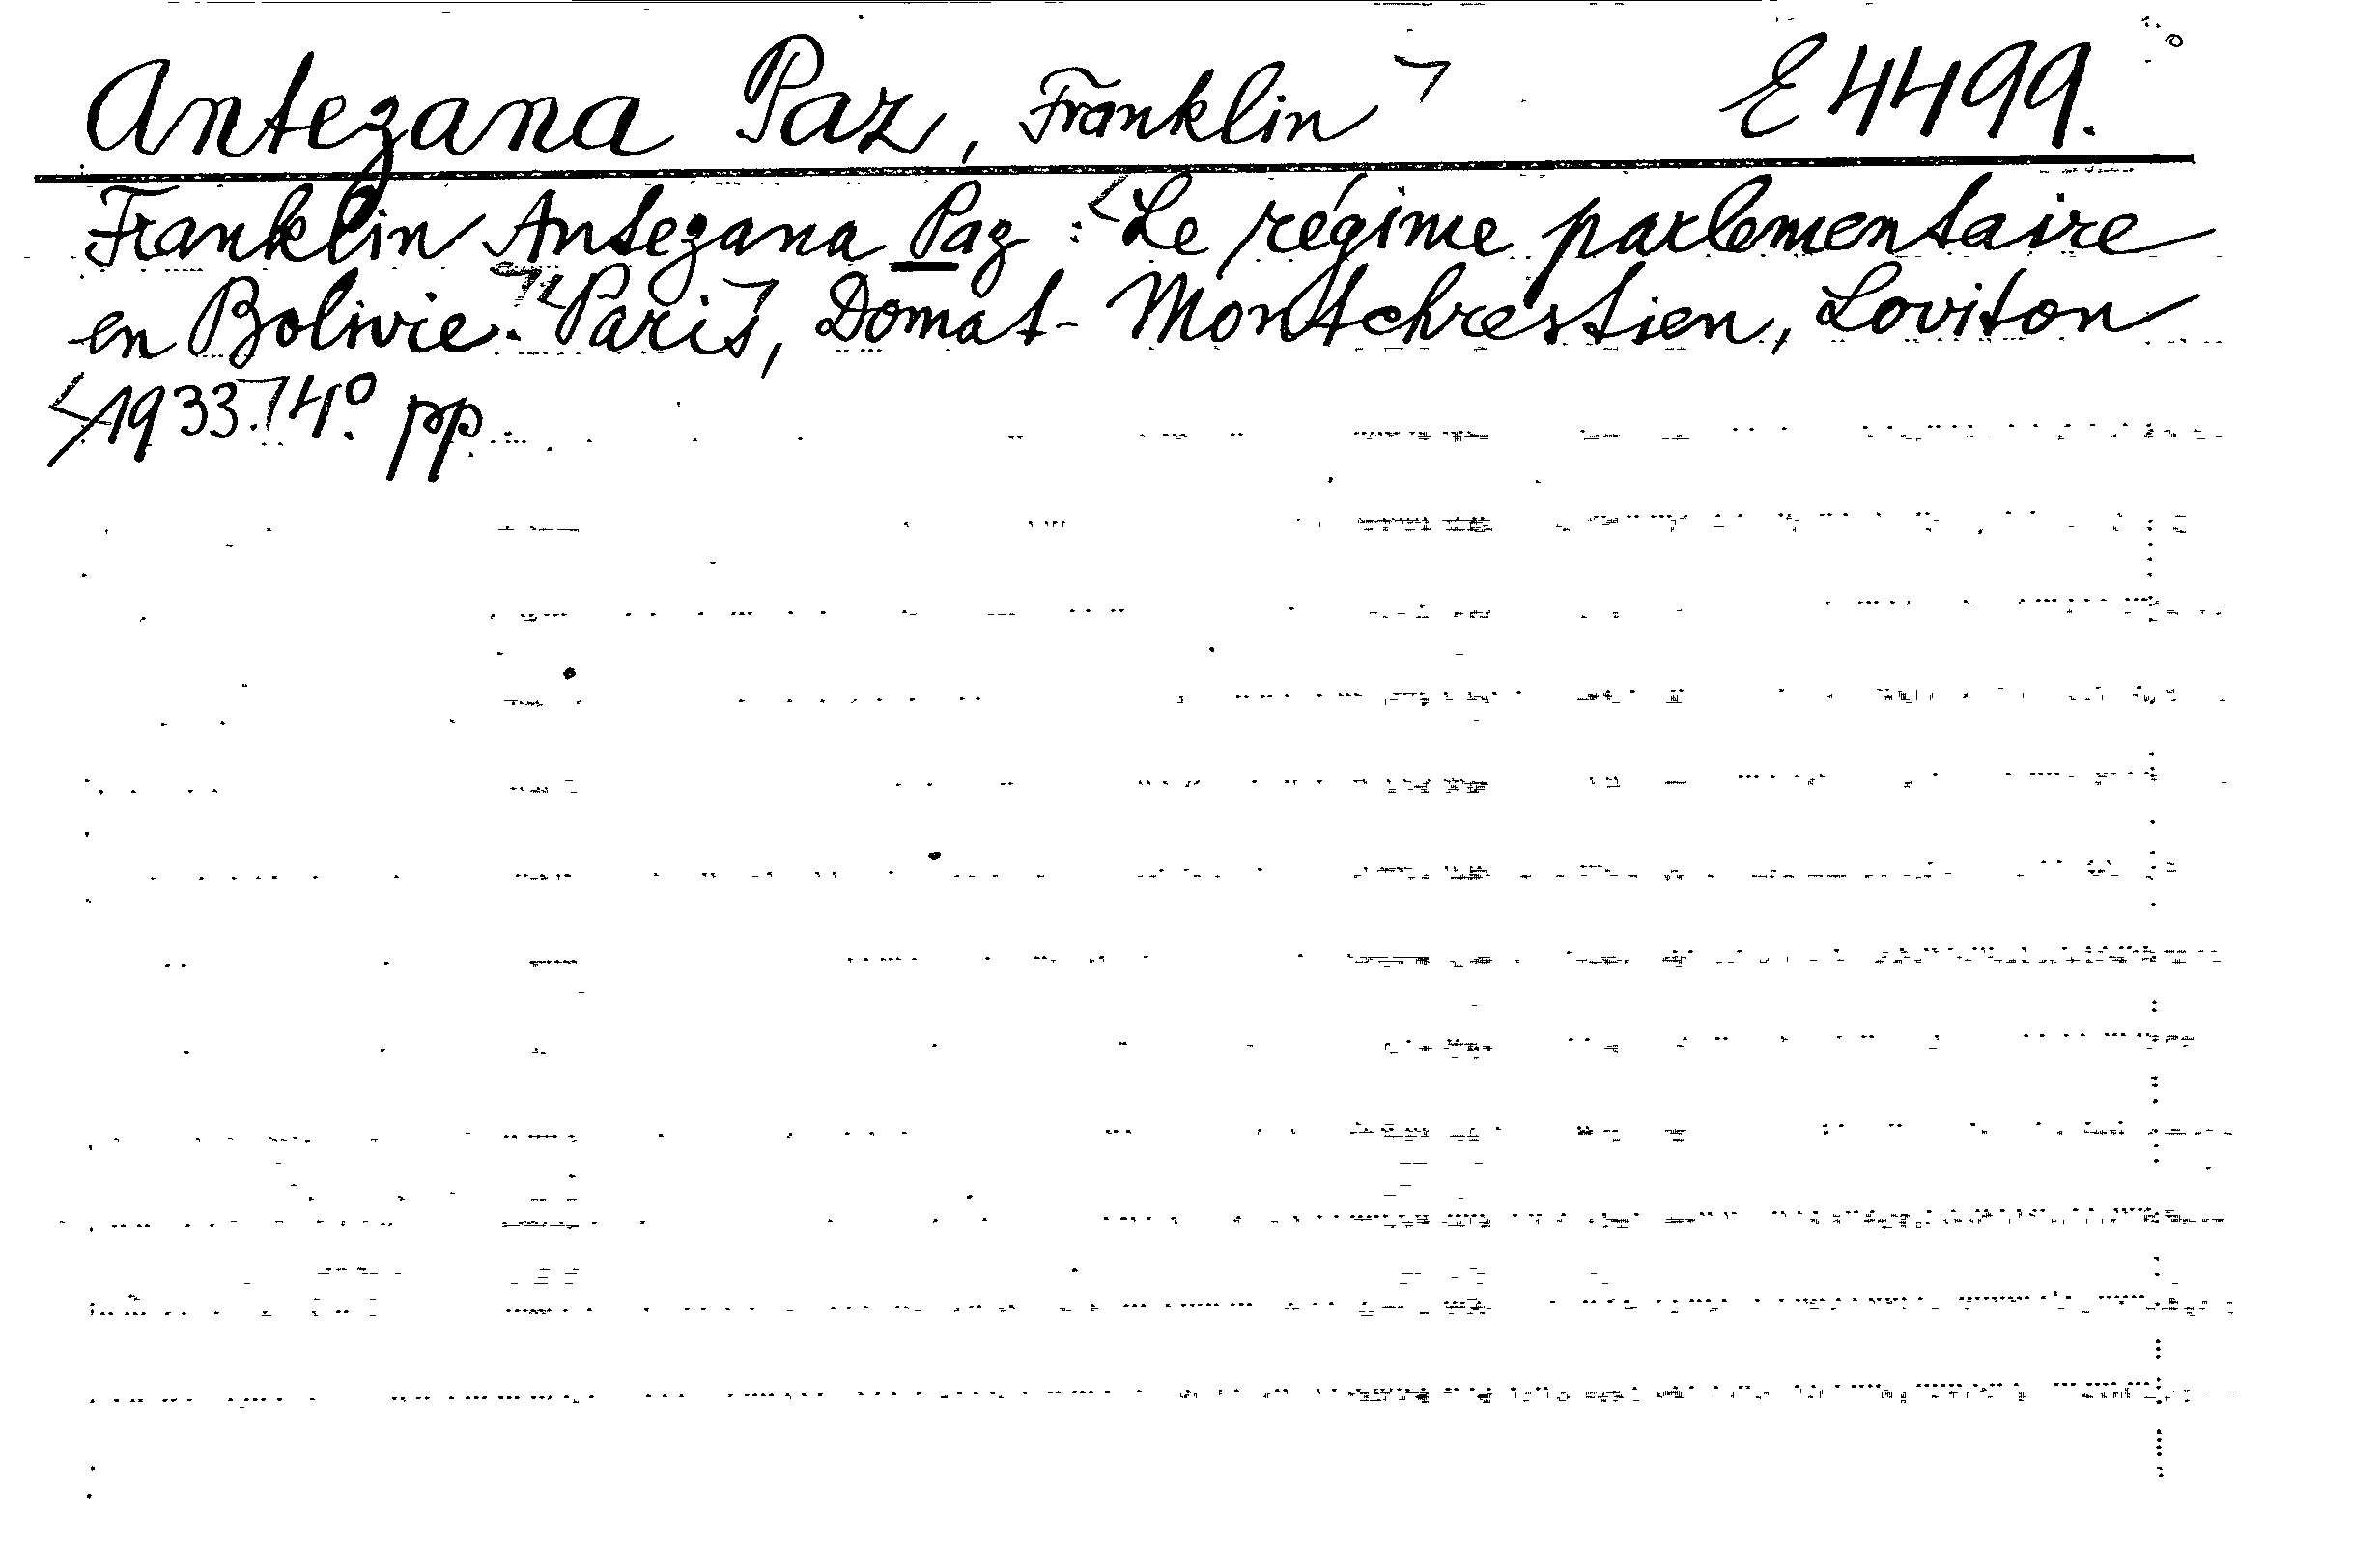 Antezana Paz, Franklin E 4499.
Franklin Antezana Paz : Le régime parlementaire
en Bolivie. Paris, Domat-Montchrestien, Loviton
1933. 4° pp